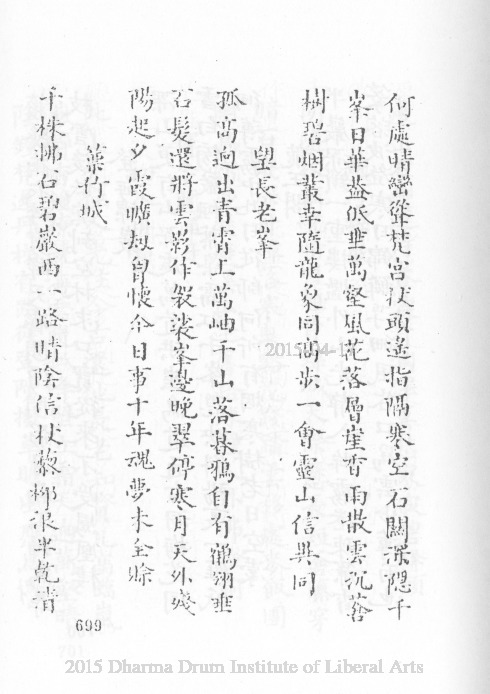 何處晴巒聳梵宮杖頭遙指隔寒空石關深隱千
峯日華葢低垂萬壑風花落層崖香雨散雲沉蒼
樹碧烟叢幸隨龍象同高步一會靈山信與同
望長老峯
孤高迥出青霄上萬岫千山落暮鴉自有鶴翎垂
石髮還將雲影作袈裟峯邊晚翠停寒月天外殘
陽起夕霞曠劫胷懷今日事十年魂夢未全賒
葉竹城
千株拂石碧巖西一路晴陰信杖黎柳浪半乾清
699
2015-04-1
2015 Dharma Drum Institute of Liberal Arts